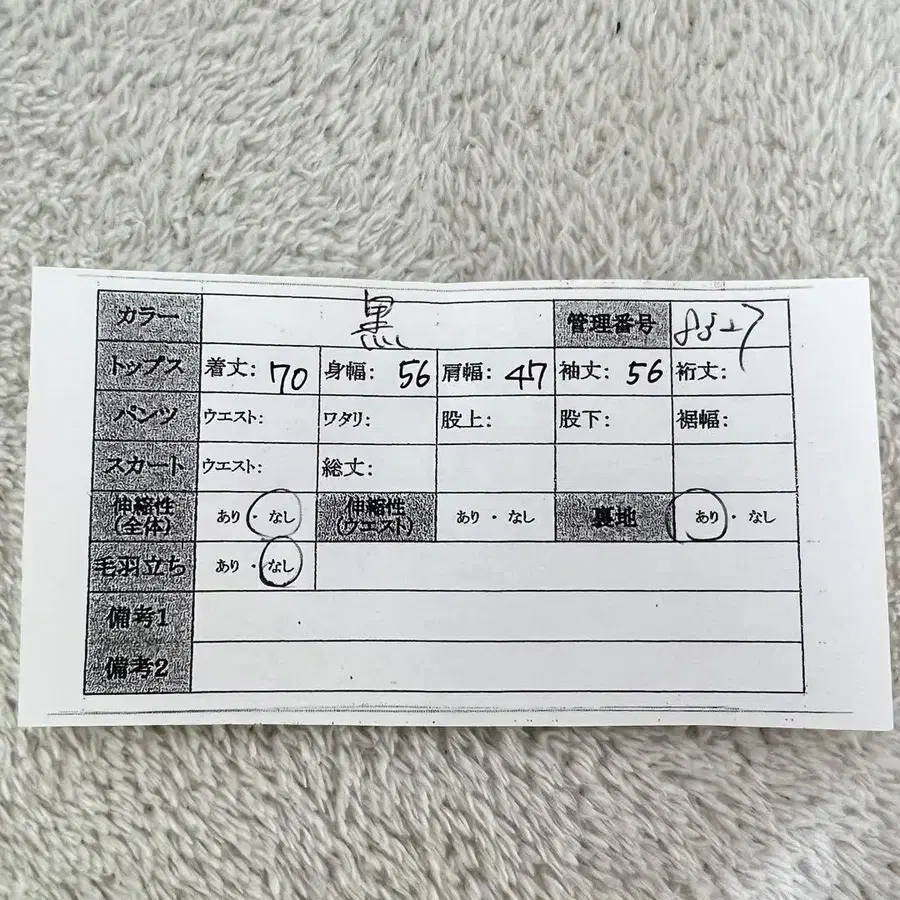 カラー 黒 管理番号
トップス 着丈: 70 身幅: 56 肩幅: 47 袖丈: 56 裄丈:
パンツ ウエスト: ワタリ: 股上: 股下: 裾幅:
スカート ウエスト: 総丈:
伸縮性(全体) あり ・ なし 伸縮性(ウエスト) あり ・ なし 裏地 あり ・ なし
毛羽立ち あり ・ なし
備考1
備考2